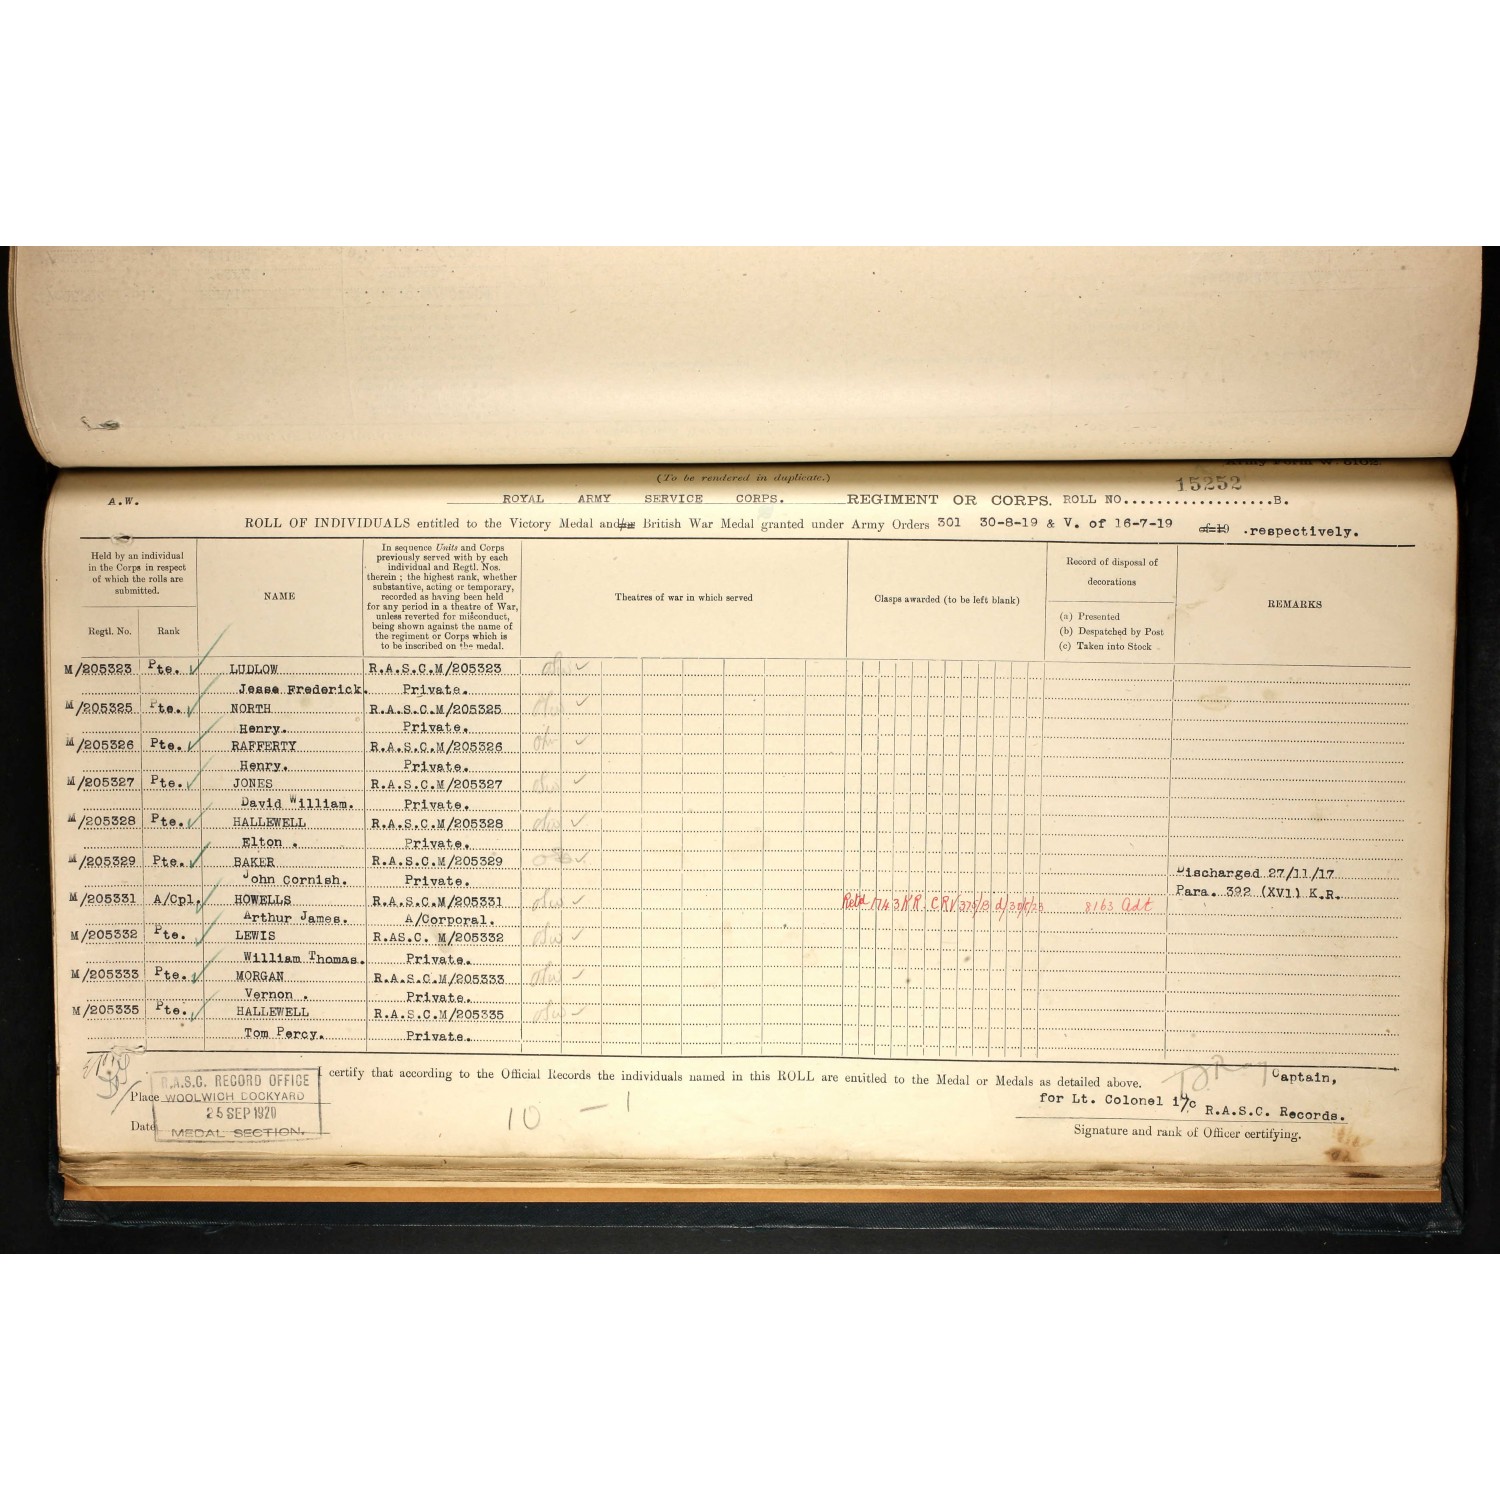 (To be rendered in duplicate.)
15252
A.W. ROYAL ARMY SERVICE CORPS. REGIMENT OR CORPS. ROLL NO. B.
ROLL OF INDIVIDUALS entitled to the Victory Medal and/or British War Medal granted under Army Orders 301 30-8-19 & V. of 16-7-19 of 19 .respectively.
Held by an individual
in the Corps in respect
of which the rolls are
submitted.
Regtl. No. Rank
NAME
In sequence Units and Corps
previously served with by each
individual and Regtl. Nos.
therein; the highest rank, whether
substantive, acting or temporary,
recorded as having been held
for any period in a theatre of War,
unless reverted for misconduct,
being shown against the name of
the regiment or Corps which is
to be inscribed on the medal.
Theatres of war in which served
Clasps awarded (to be left blank)
Record of disposal of
decorations
(a) Presented
(b) Despatched by Post
(c) Taken into Stock
REMARKS
M/205323 Pte. LUDLOW R.A.S.C.M/205323
Jesse Frederick. Private.
M/205325 Pte. NORTH R.A.S.C.M/205325
Henry. Private.
M/205326 Pte. RAFFERTY R.A.S.C.M/205326
Henry. Private.
M/205327 Pte. JONES R.A.S.C.M/205327
David William. Private.
M/205328 Pte. HALLEWELL R.A.S.C.M/205328
Elton . Private.
M/205329 Pte. BAKER R.A.S.C.M/205329
John Cornish. Private. Discharged 27/11/17
M/205331 A/Cpl. HOWELLS R.A.S.C.M/205331 Retd 1743 KR. 8163 Adt Para. 392 (XVI) K.R.
Arthur James. A/Corporal.
M/205332 Pte. LEWIS R.AS.C. M/205332
William Thomas. Private.
M/205333 Pte. MORGAN R.A.S.C.M/205333
Vernon . Private.
M/205335 Pte. HALLEWELL R.A.S.C.M/205335
Tom Percy. Private.
I certify that according to the Official Records the individuals named in this ROLL are entitled to the Medal or Medals as detailed above.
Captain,
for Lt. Colonel i/c R.A.S.C. Records.
Signature and rank of Officer certifying.
Place
Date
R.A.S.C. RECORD OFFICE
WOOLWICH DOCKYARD
25 SEP 1920
MEDAL SECTION.
10 - 1